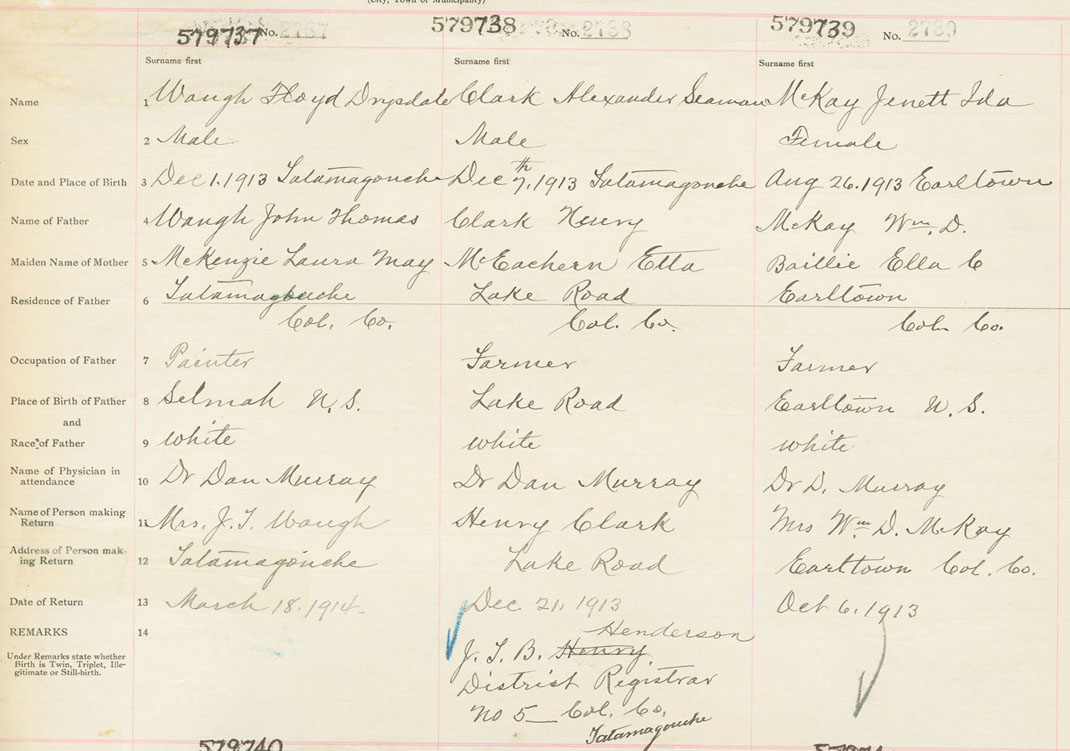 (City, Town or Municipality)
579737 No. 2737 579738 No. 2738 579739 No. 2739
Surname first Surname first Surname first
Name 1 Waugh Floyd Drysdale Clark Alexander Seaman McKay Jenett Ida
Sex 2 Male Male Female
Date and Place of Birth 3 Dec 1. 1913 Tatamagouche Dec 7th, 1913 Tatamagouche Aug 26. 1913 Earltown
Name of Father 4 Waugh John Thomas Clark Henry McKay Wm. D.
Maiden Name of Mother 5 McKenzie Laura May McEachern Etta Baillie Ella C
Residence of Father 6 Tatamagouche Lake Road Earltown
Col. Co. Col. Co. Col. Co.
Occupation of Father 7 Painter Farmer Farmer
Place of Birth of Father 8 Selmah N.S. Lake Road Earltown N.S.
and
Race of Father 9 white white white
Name of Physician in attendance 10 Dr Dan Murray Dr Dan Murray Dr D. Murray
Name of Person making Return 11 Mrs. J. T. Waugh Henry Clark Mrs Wm D. McKay
Address of Person making Return 12 Tatamagouche Lake Road Earltown Col. Co.
Date of Return 13 March 18. 1914. Dec 21, 1913 Oct 6, 1913
REMARKS 14 Henderson
Under Remarks state whether Birth is Twin, Triplet, Illegitimate or Still-birth. J. T. B. Henry
District Registrar
No 5 Col. Co.
Tatamagouche
579740